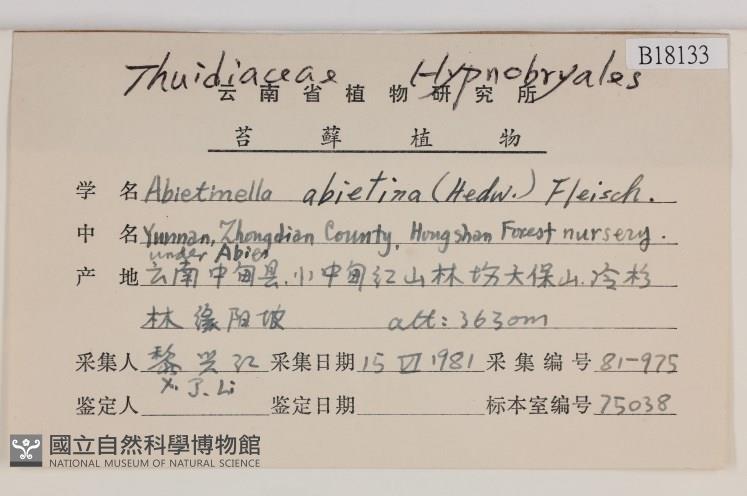 B18133
Thuidiaceae Hypnobryales
云南省植物研究所
苔藓植物
学名 Abietinella abietina (Hedw.) Fleisch.
中名 Yunnan, Zhongdian County, Hongshan Forest nursery.
under Abies
产地 云南中甸县.小中甸红山林场大保山.冷杉
林缘阳坡 alt: 3630m
采集人 黎兴江 采集日期 15 VI 1981 采集编号 81-975
X. J. Li
鉴定人 鉴定日期 标本室编号 75038
國立自然科學博物館
NATIONAL MUSEUM OF NATURAL SCIENCE